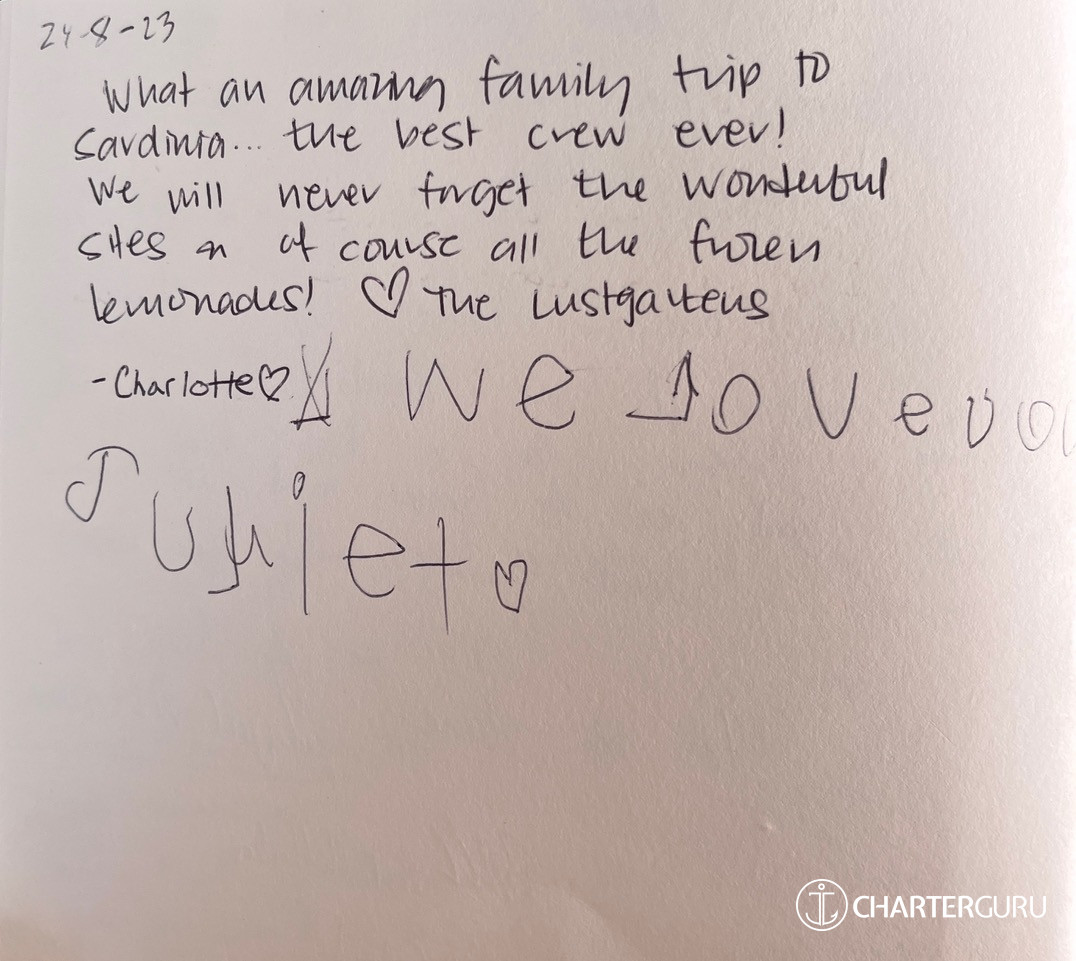 24-8-23
What an amazing family trip to
Sardinia... the best crew ever!
We will never forget the wonderful
sites an of course all the frozen
lemonades! ♡ The Lustgartens
-Charlotte♡ We love you
♡
CHARTERGURU